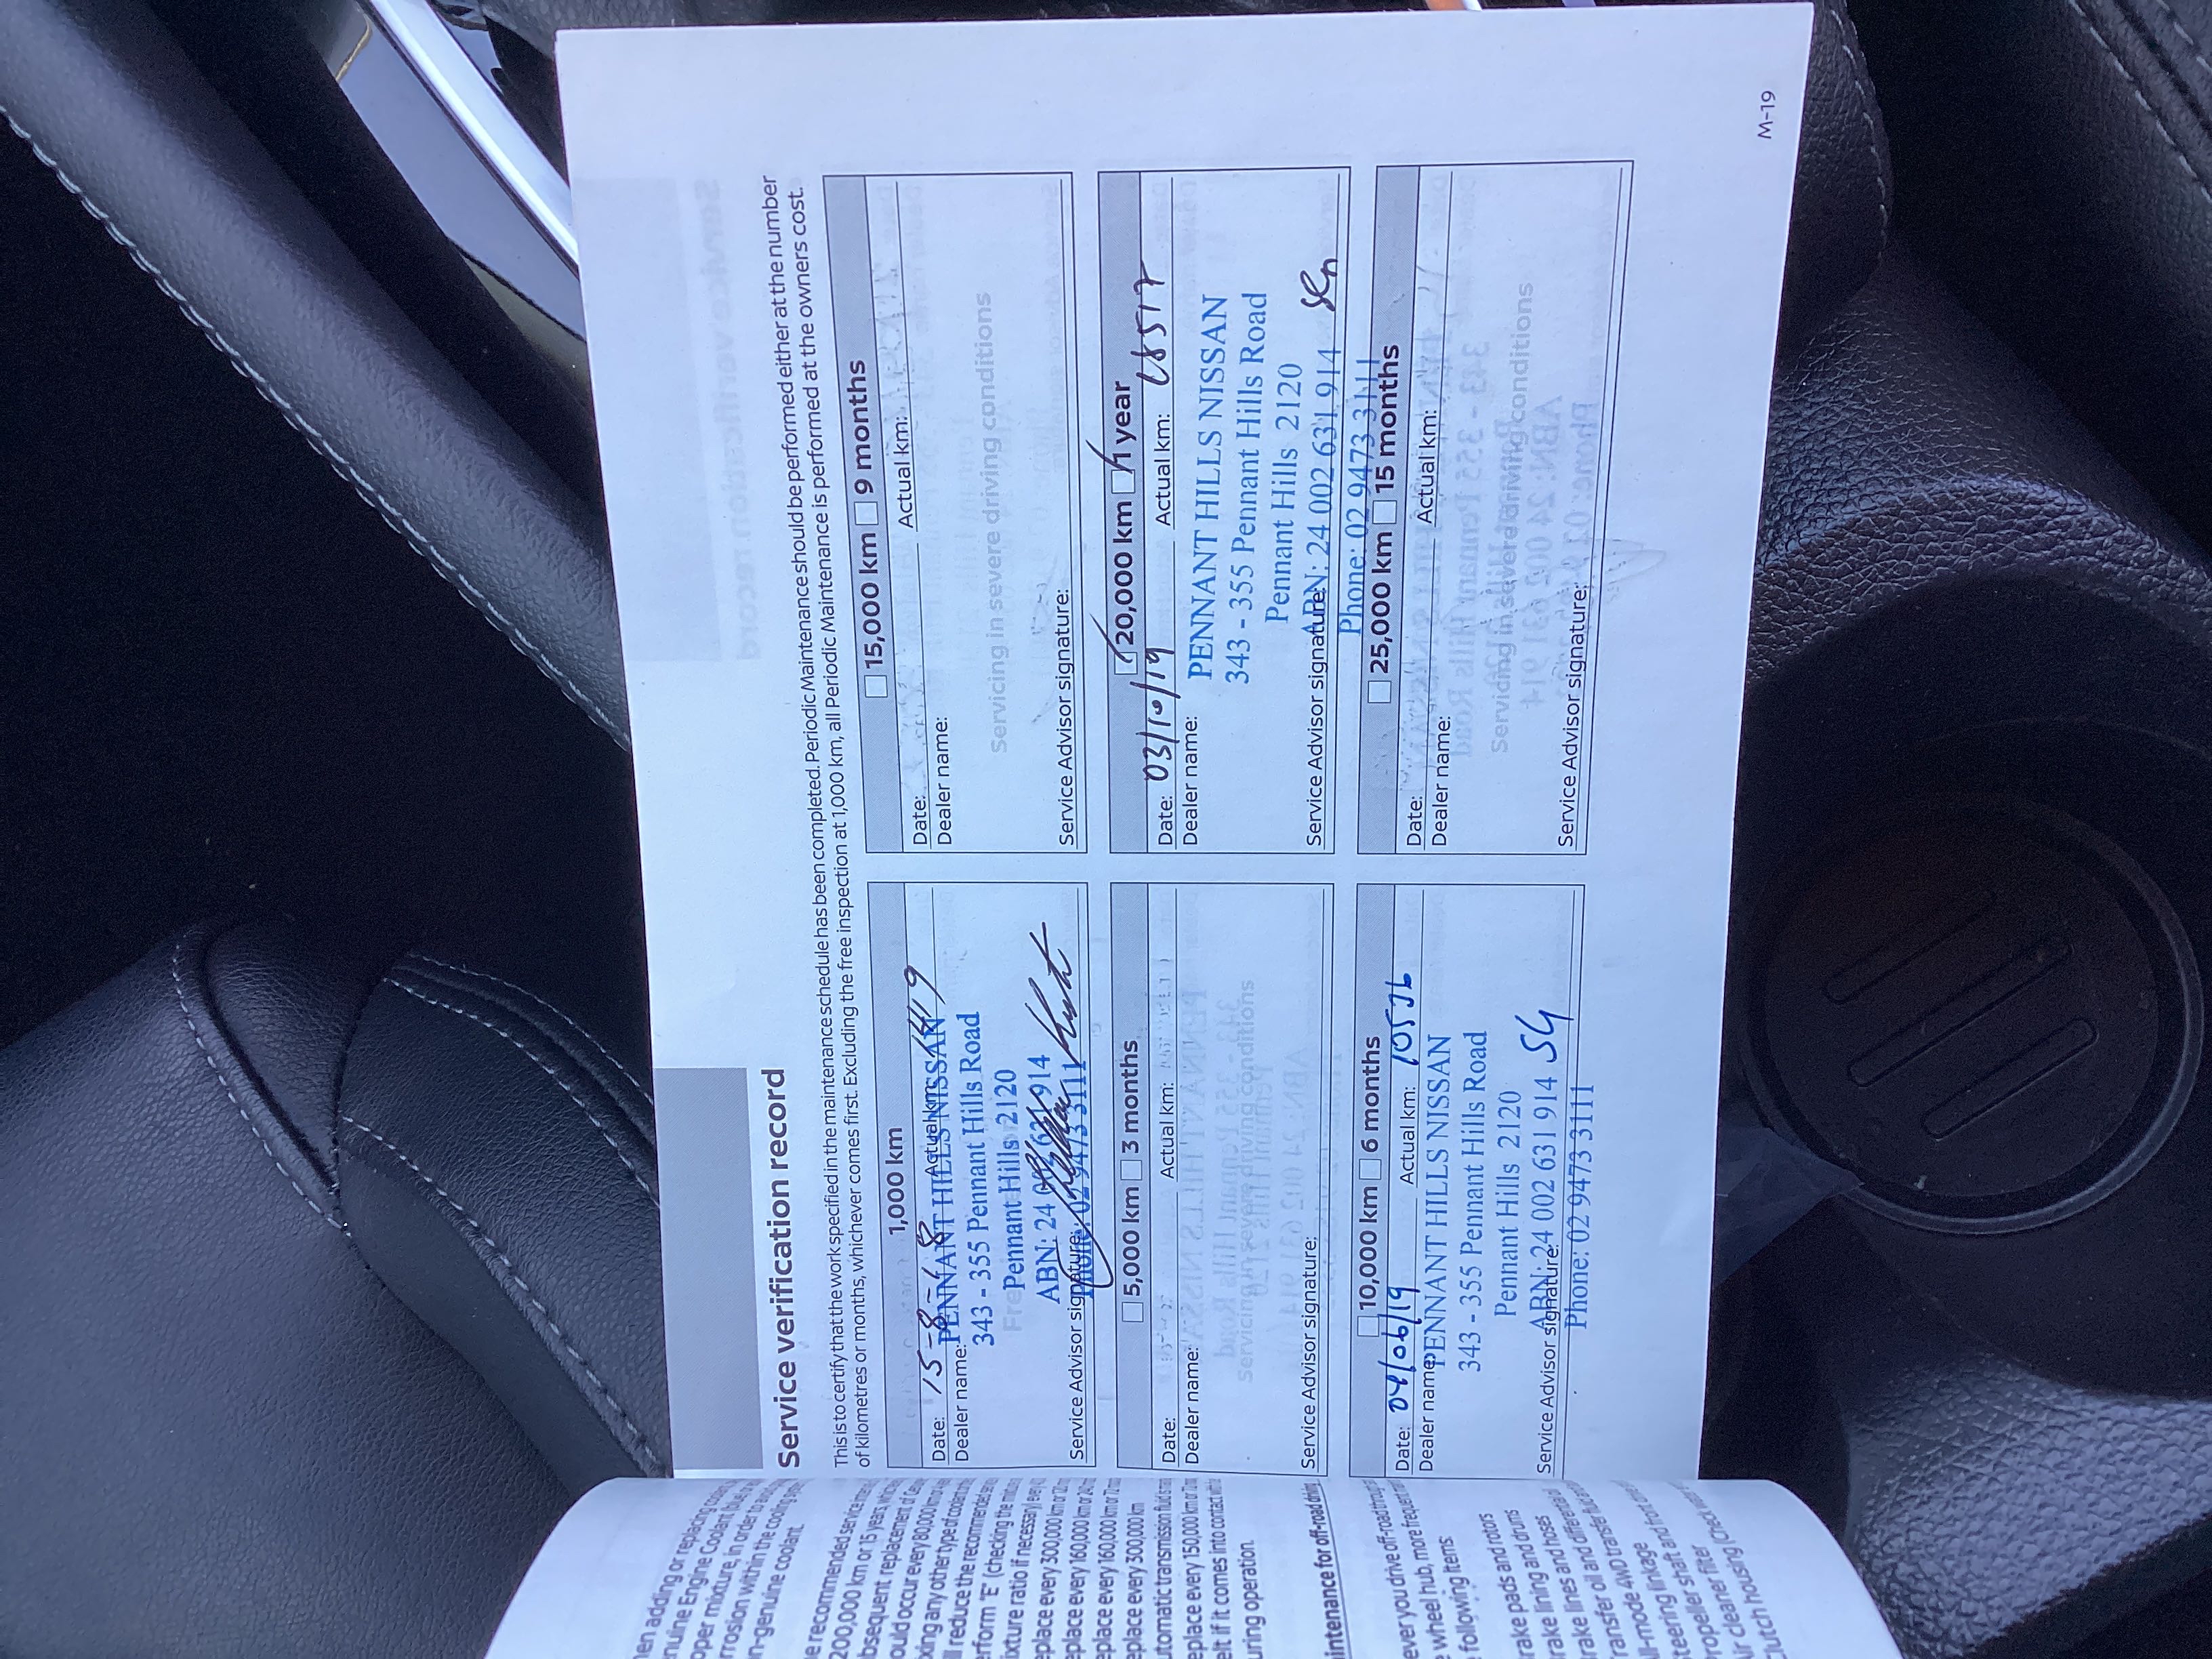 Service verification record
This is to certify that the work specified in the maintenance schedule has been completed. Periodic Maintenance should be performed either at the number
of kilometres or months, whichever comes first. Excluding the free inspection at 1,000 km, all Periodic Maintenance is performed at the owners cost.
1,000 km
Date: 15-8-18 Actual km: 1419
Dealer name:
PENNANT HILLS NISSAN
343 - 355 Pennant Hills Road
Pennant Hills 2120
ABN: 24 002 631 914
Phone: 02 9473 3111
Service Advisor signature:
5,000 km 3 months
Date: Actual km:
Dealer name:
Servicing in severe driving conditions
Service Advisor signature:
10,000 km 6 months
Date: 04/06/19 Actual km: 10536
Dealer name:
PENNANT HILLS NISSAN
343 - 355 Pennant Hills Road
Pennant Hills 2120
ABN: 24 002 631 914
Service Advisor signature: SG
Phone: 02 9473 3111
15,000 km 9 months
Date: Actual km:
Dealer name:
Servicing in severe driving conditions
Service Advisor signature:
20,000 km 1 year
Date: 03/10/19 Actual km: 18517
Dealer name:
PENNANT HILLS NISSAN
343 - 355 Pennant Hills Road
Pennant Hills 2120
ABN: 24 002 631 914
Service Advisor signature:
Phone: 02 9473 3111
25,000 km 15 months
Date: Actual km:
Dealer name:
Servicing in severe driving conditions
Service Advisor signature:
M-19
when adding or replacing
Engine Coolant
mixture, in order to
within the cooling
coolant.
recommended service
200,000 km or 15 years,
replacement of
occur every 80,000 km
any other type of coolant
reduce the recommended
"E" (checking the
ratio if necessary)
replace every 300,000 km or
replace every 160,000 km or
replace every 160,000 km or
replace every 300,000 km
automatic transmission fluid
replace every 150,000 km or
if it comes into contact
during operation.
maintenance for off-road driving
you drive off-road through
wheel hub, more frequent
following items:
brake pads and rotors
brake lining and drums
brake lines and hoses
transfer oil and differential
All-mode 4WD transfer
linkage
Steering shaft and front
Propeller filter
Air cleaner filter
Clutch housing (Check